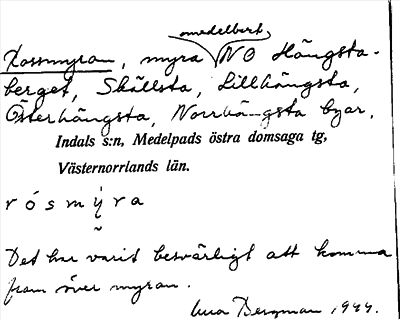 omedelbart
Rossmyran, myra NO Hängsta-
berget, Skällsta, Lillhängsta,
Österhängsta, Norrhängsta byar,
Indals s:n, Medelpads östra domsaga tg,
Västernorrlands län.
r ó s m ỳ r a
~
Det har varit besvärligt att komma
fram över myran.
Bergman 1944.